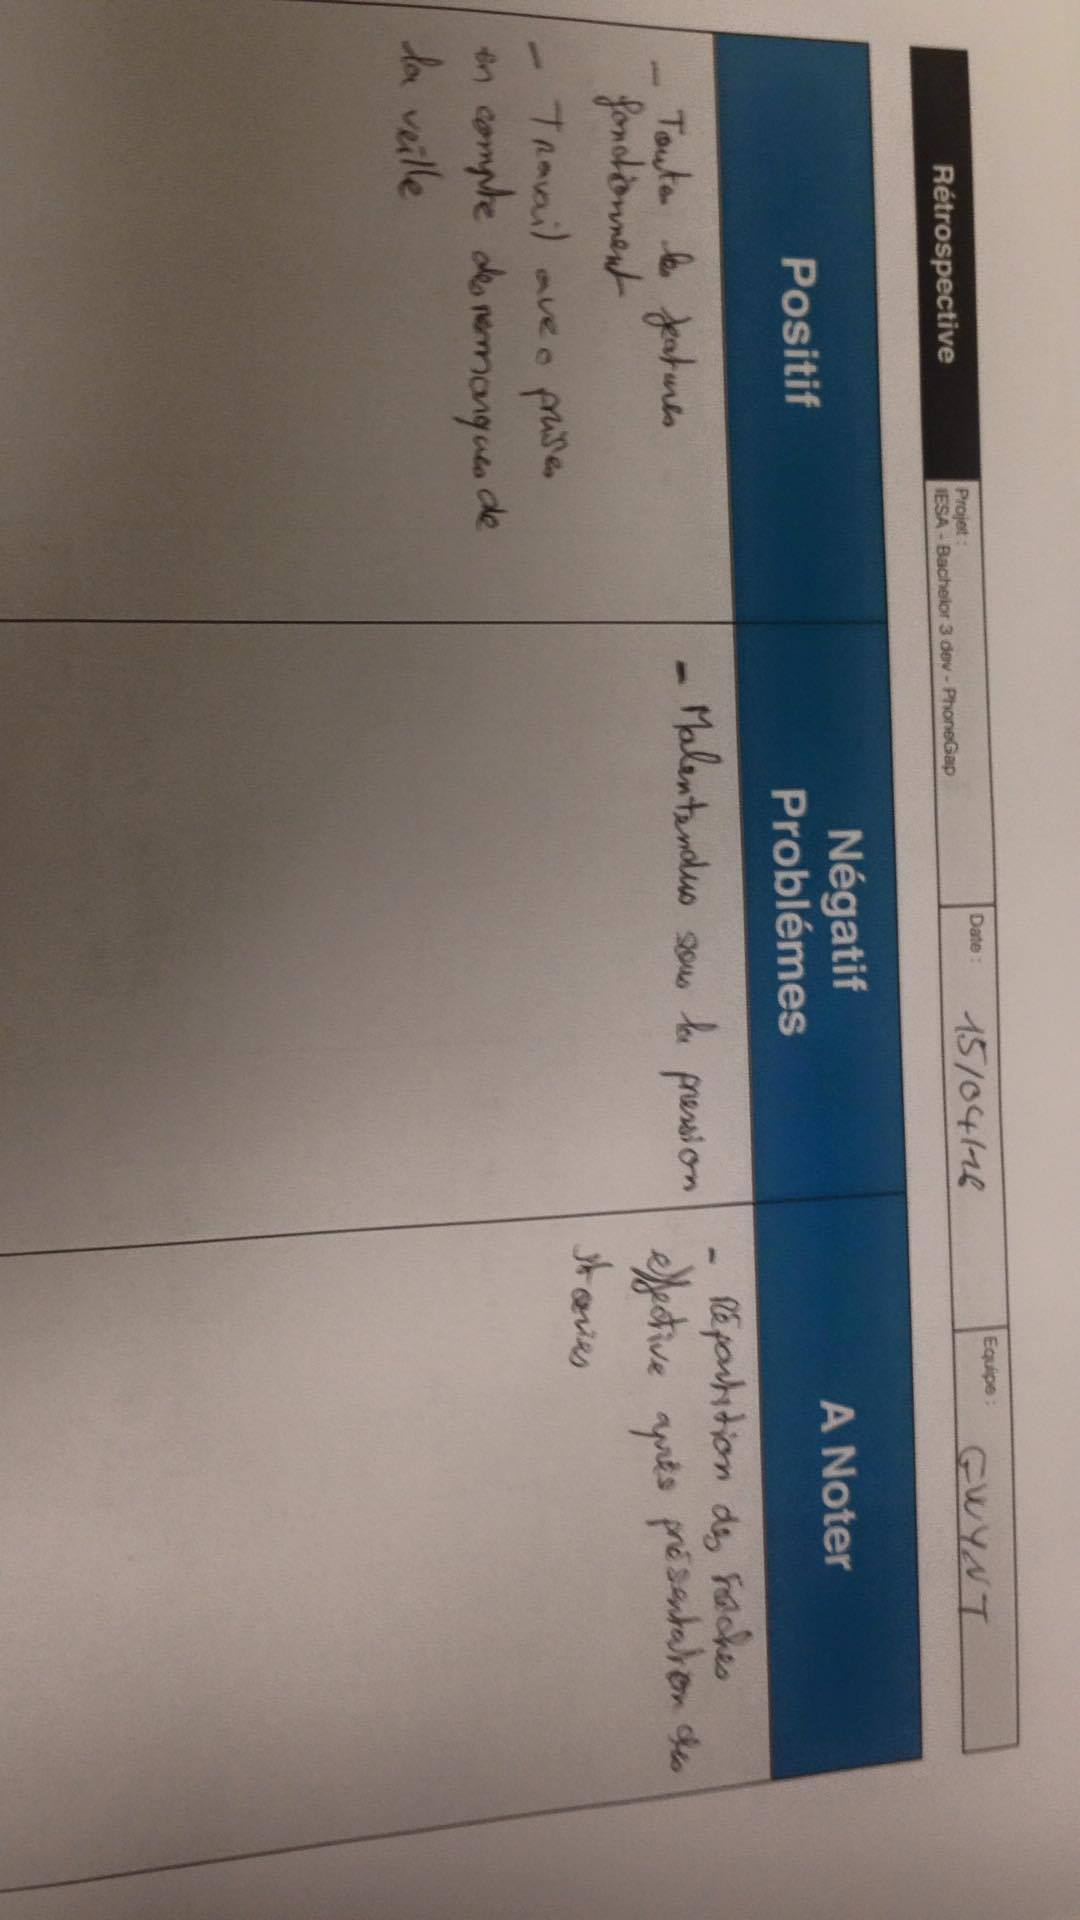 Rétrospective
Projet :
IESA - Bachelor 3 dev - PhoneGap
Date : 15/04/16
Equipe : GWYNT
Positif
- Toutes les features
fonctionnent
- Travail avec prises
en compte des remarques de
la veille
Négatif
Problémes
- Malentendus sous la pression
A Noter
- Répartition des taches
effective après présentation des
stories